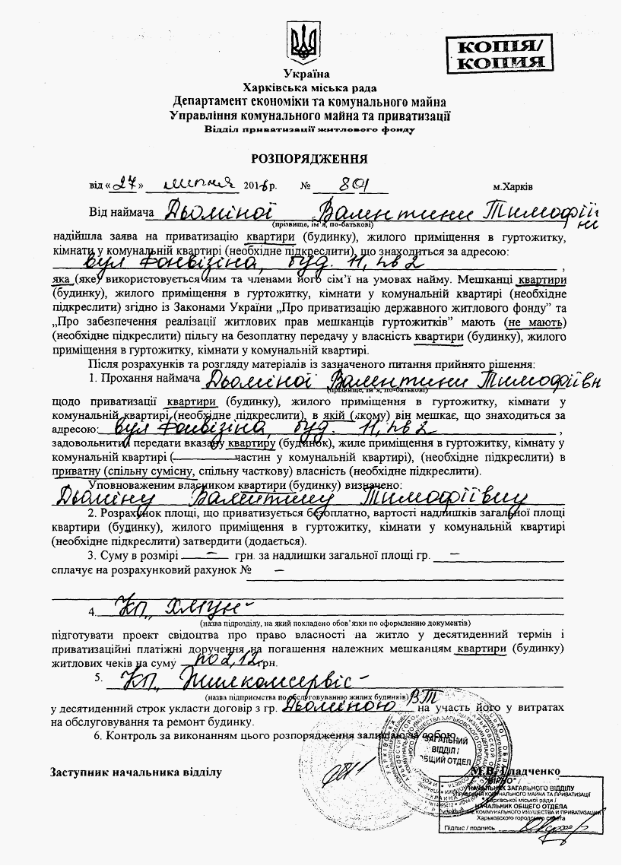 КОПІЯ/
КОПИЯ
Україна
Харківська міська рада
Департамент економіки та комунального майна
Управління комунального майна та приватизації
Відділ приватизації житлового фонду
РОЗПОРЯДЖЕННЯ
від «27» липня 2016р. № 801 м.Харків
Від наймача Дьоміної Валентини Тимофіївни
(прізвище, ім'я, по-батькові)
надійшла заява на приватизацію квартири (будинку), жилого приміщення в гуртожитку,
кімнати у комунальній квартирі (необхідне підкреслити), що знаходиться за адресою:
вул Фонвізіна, буд. 11, кв 2 ,
яка (яке) використовується ним та членами його сім'ї на умовах найму. Мешканці квартири
(будинку), жилого приміщення в гуртожитку, кімнати у комунальній квартирі (необхідне
підкреслити) згідно із Законами України „Про приватизацію державного житлового фонду" та
„Про забезпечення реалізації житлових прав мешканців гуртожитків" мають (не мають)
(необхідне підкреслити) пільгу на безоплатну передачу у власність квартири (будинку), жилого
приміщення в гуртожитку, кімнати у комунальній квартирі.
Після розрахунків та розгляду матеріалів із зазначеного питання прийнято рішення:
1. Прохання наймача Дьоміної Валентини Тимофіївн
(прізвище, ім'я, по-батькові)
щодо приватизації квартири (будинку), жилого приміщення в гуртожитку, кімнати у
комунальній квартирі (необхідне підкреслити), в якій (якому) він мешкає, що знаходиться за
адресою: вул Фонвізіна, буд. 11, кв 2 ,
задовольнити, передати вказану квартиру (будинок), жиле приміщення в гуртожитку, кімнату у
комунальній квартирі ( частин у комунальній квартирі), (необхідне підкреслити) в
приватну (спільну сумісну, спільну часткову) власність (необхідне підкреслити).
Уповноваженим власником квартири (будинку) визначено:
Дьоміну Валентину Тимофіївну
2. Розрахунок площі, що приватизується безоплатно, вартості надлишків загальної площі
квартири (будинку), жилого приміщення в гуртожитку, кімнати у комунальній квартирі
(необхідне підкреслити) затвердити (додається).
3. Суму в розмірі — грн. за надлишки загальної площі гр. —
сплачує на розрахунковий рахунок № —
4. КП „ -
(назва підрозділу, на який покладено обов'язки по оформленню документів)
підготувати проект свідоцтва про право власності на житло у десятиденний термін і
приватизаційні платіжні доручення на погашення належних мешканцям квартири (будинку)
житлових чеків на суму грн.
5. КП „Жилкомсервіс-
(назва підприємства по обслуговуванню жилих будинків)
у десятиденний строк укласти договір з гр. Дьоміною ВТ на участь його у витратах
на обслуговування та ремонт будинку.
6. Контроль за виконанням цього розпорядження залишаю за собою.
ЗАГАЛЬНИЙ
ВІДДІЛ /
ОБЩИЙ ОТДЕЛ
Заступник начальника відділу М.В. Гладченко
НАЧАЛЬНИК ЗАГАЛЬНОГО ВІДДІЛУ
УПРАВЛІННЯ КОМУНАЛЬНОГО МАЙНА ТА ПРИВАТИЗАЦІЇ
Харківської міської ради /
НАЧАЛЬНИК ОБЩЕГО ОТДЕЛА
УПРАВЛЕНИЕ КОММУНАЛЬНОГО ИМУЩЕСТВА И ПРИВАТИЗАЦИИ
Харьковского городского совета
Підпис / подпись